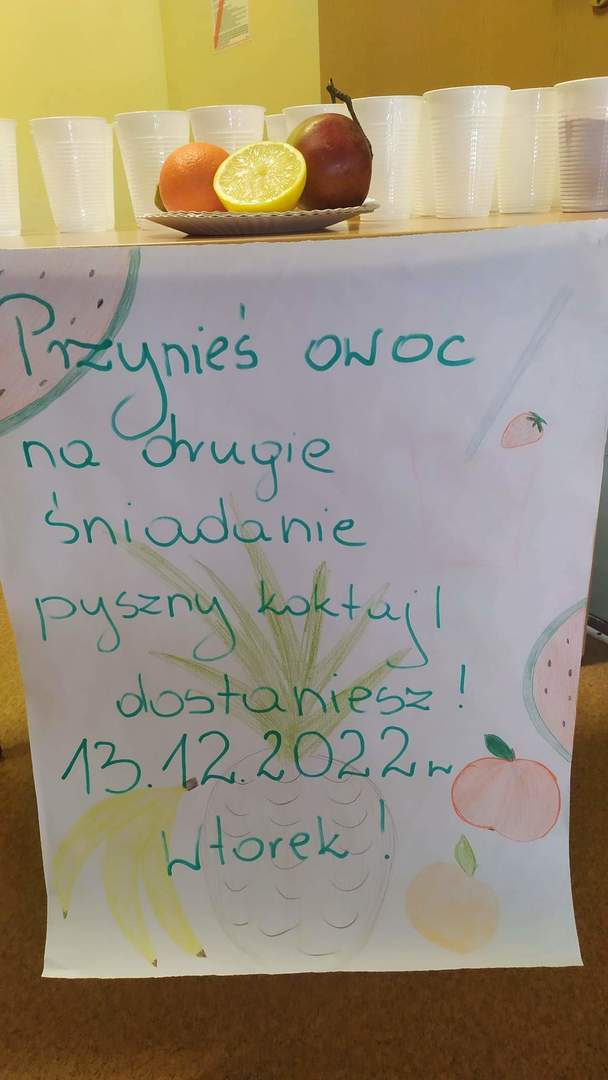 Przynieś owoc
na drugie
śniadanie
pyszny koktajl
dostaniesz!
13.12.2022r
wtorek!